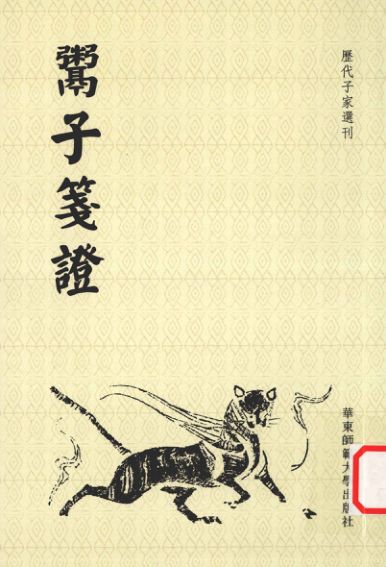 歷代子家選刊
鬻子箋證
華東師範大學出版社